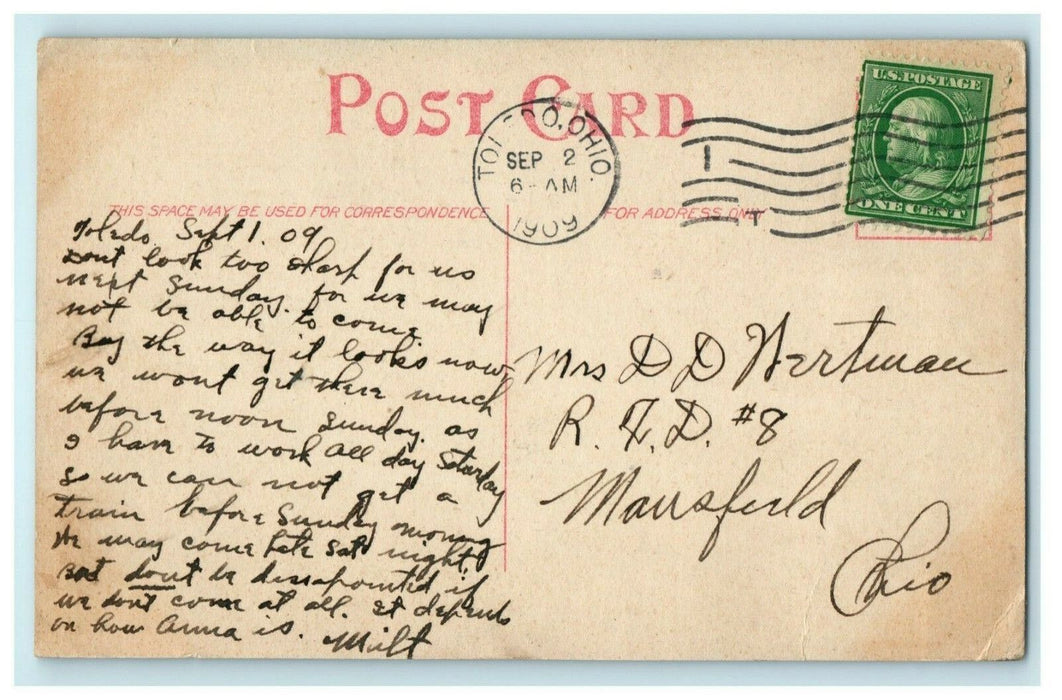 POST CARD
U.S. POSTAGE
ONE CENT
TOLEDO, OHIO.
SEP 2
6- AM
1909
THIS SPACE MAY BE USED FOR CORRESPONDENCE
FOR ADDRESS ONLY
Toledo, Sept 1. 09
Dont look too sharp for us
next Sunday. for we may
not be able to come.
Buy the way it looks now
we wont get there much
before noon Sunday. as
I have to work all day Saturday
so we can not get a
train before Sunday morning
We may come late Sat night.
But dont be dissapointed if
we dont come at all. It depends
on how Anna is. Milt
Mrs D D Wertman
R. F. D. #8
Mansfield
Ohio